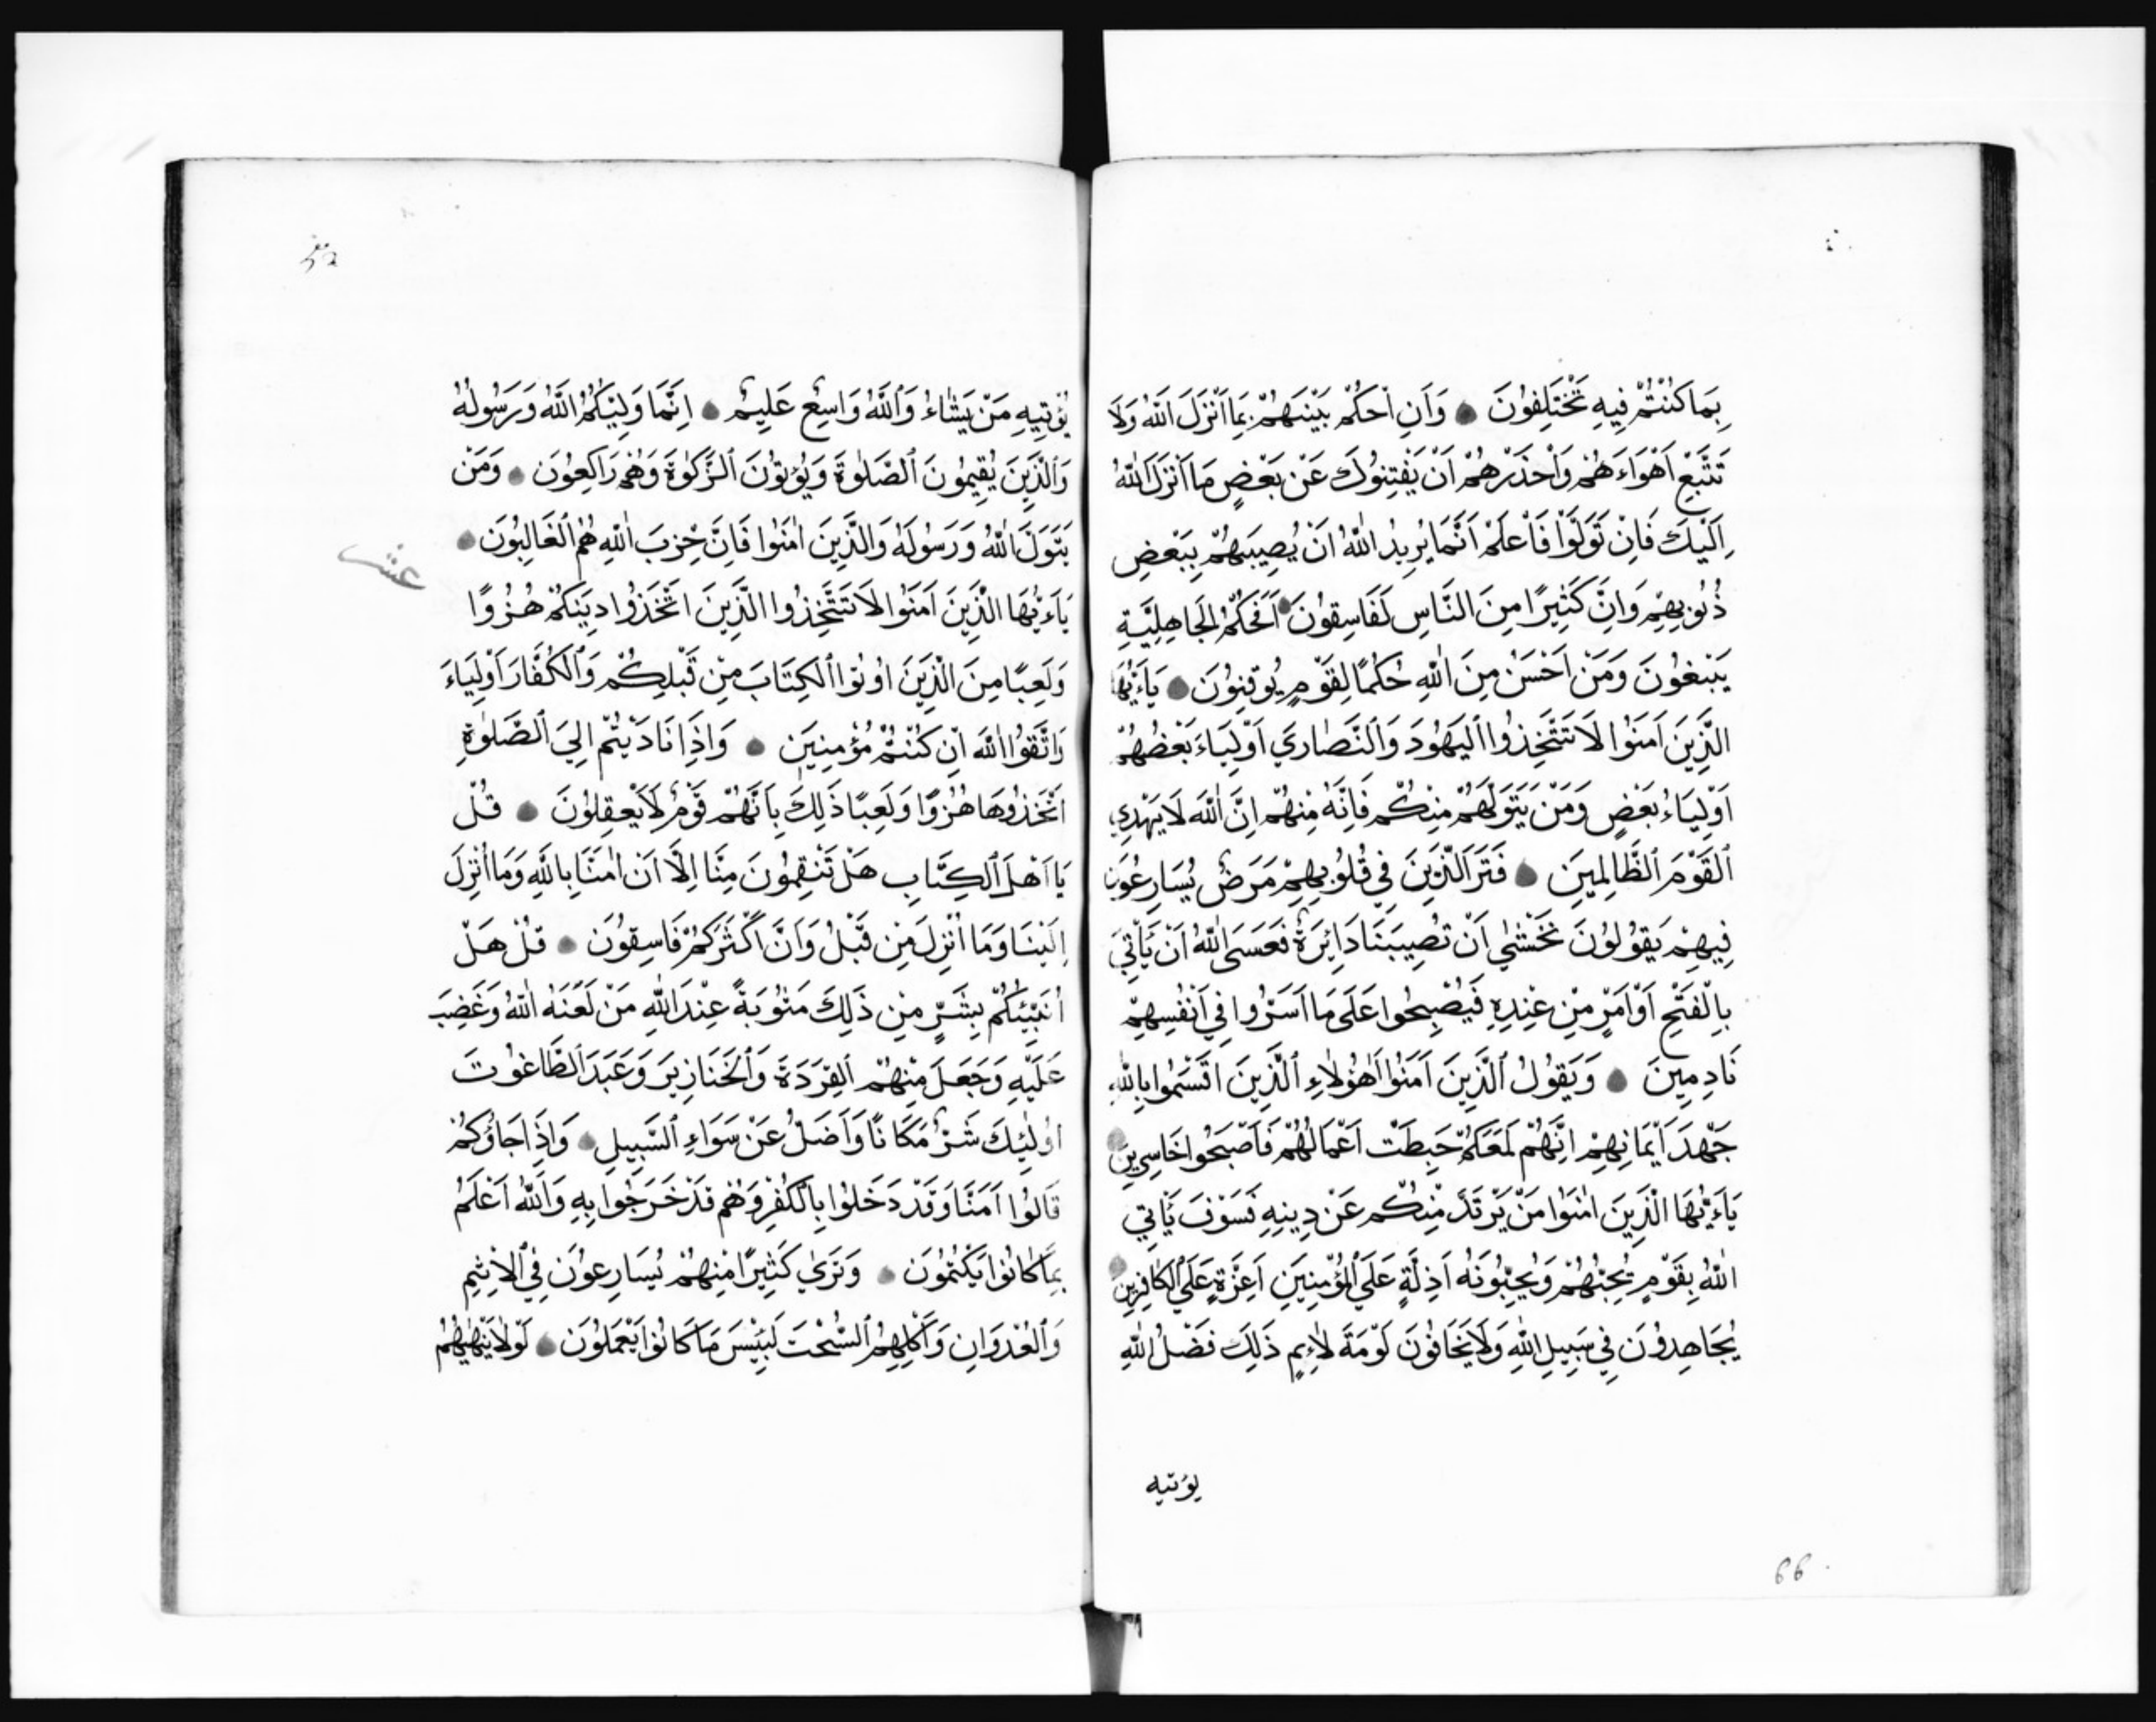 بِمَا كُنْتُمْ فِيهِ تَخْتَلِفُونَ وَاَنِ احْكُمْ بَيْنَهُمْ بِمَا اَنْزَلَ اللّٰهُ وَلَا
تَتَّبِعْ اَهْوَاءَهُمْ وَاحْذَرْهُمْ اَنْ يَفْتِنُوكَ عَنْ بَعْضِ مَا اَنْزَلَ اللّٰهُ
اِلَيْكَ فَاِنْ تَوَلَّوْا فَاعْلَمْ اَنَّمَا يُرِيدُ اللّٰهُ اَنْ يُصِيبَهُمْ بِبَعْضِ
ذُنُوبِهِمْ وَاِنَّ كَثِيرًا مِنَ النَّاسِ لَفَاسِقُونَ اَفَحُكْمَ الْجَاهِلِيَّةِ
يَبْغُونَ وَمَنْ اَحْسَنُ مِنَ اللّٰهِ حُكْمًا لِقَوْمٍ يُوقِنُونَ يَاءَيُّهَا
الَّذِينَ اَمَنُوا لَا تَتَّخِذُوا الْيَهُودَ وَالنَّصَارَي اَوْلِيَاءَ بَعْضُهُمْ
اَوْلِيَاءُ بَعْضٍ وَمَنْ يَتَوَلَّهُمْ مِنْكُمْ فَاِنَّهُ مِنْهُمْ اِنَّ اللّٰهَ لَا يَهْدِي
الْقَوْمَ الظَّالِمِينَ فَتَرَ الَّذِينَ فِي قُلُوبِهِمْ مَرَضٌ يُسَارِعُونَ
فِيهِمْ يَقُولُونَ نَخْشٰي اَنْ تُصِيبَنَا دَائِرَةٌ فَعَسَى اللّٰهُ اَنْ يَأْتِيَ
بِالْفَتْحِ اَوْ اَمْرٍ مِنْ عِنْدِهِ فَيُصْبِحُوا عَلَى مَا اَسَرُّوا فِي اَنْفُسِهِمْ
نَادِمِينَ وَيَقُولُ الَّذِينَ اَمَنُوا اَهٰؤُلَاءِ الَّذِينَ اَقْسَمُوا بِاللّٰهِ
جَهْدَ اَيْمَانِهِمْ اِنَّهُمْ لَمَعَكُمْ حَبِطَتْ اَعْمَالُهُمْ فَاَصْبَحُوا خَاسِرِينَ
يَاءَيُّهَا الَّذِينَ اٰمَنُوا مَنْ يَرْتَدَّ مِنْكُمْ عَنْ دِينِهِ فَسَوْفَ يَأْتِي
اللّٰهُ بِقَوْمٍ يُحِبُّهُمْ وَيُحِبُّونَهُ اَذِلَّةٍ عَلَى الْمُؤْمِنِينَ اَعِزَّةٍ عَلَى الْكَافِرِينَ
يُجَاهِدُونَ فِي سَبِيلِ اللّٰهِ وَلَا يَخَافُونَ لَوْمَةَ لَائِمٍ ذَلِكَ فَضْلُ اللّٰهِ
يؤتيه
66
يُؤْتِيهِ مَنْ يَشَاءُ وَاللّٰهُ وَاسِعٌ عَلِيمٌ اِنَّمَا وَلِيُّكُمُ اللّٰهُ وَرَسُولُهُ
وَالَّذِينَ يُقِيمُونَ الصَّلٰوةَ وَيُؤْتُونَ الزَّكٰوةَ وَهُمْ رَاكِعُونَ وَمَنْ
يَتَوَلَّ اللّٰهُ وَرَسُولَهُ وَالَّذِينَ اٰمَنُوا فَاِنَّ حِزْبَ اللّٰهِ هُمُ الْغَالِبُونَ
عشر
يَاءَيُّهَا الَّذِينَ اَمَنُوا لَا تَتَّخِذُوا الَّذِينَ اتَّخَذُوا دِينَكُمْ هُزُوًا
وَلَعِبًا مِنَ الَّذِينَ اُوتُوا الْكِتَابَ مِنْ قَبْلِكُمْ وَالْكُفَّارَ اَوْلِيَاءَ
وَاتَّقُوا اللّٰهَ اِنْ كُنْتُمْ مُؤْمِنِينَ وَاِذَا نَادَيْتُمْ اِلَيَ الصَّلٰوةِ
اتَّخَذُوهَا هُزُوًا وَلَعِبًا ذَلِكَ بِاَنَّهُمْ قَوْمٌ لَا يَعْقِلُونَ قُلْ
يَا اَهْلَ الْكِتَابِ هَلْ تَنْقِمُونَ مِنَّا اِلَّا اَنْ اٰمَنَّا بِاللّٰهِ وَمَا اُنْزِلَ
اِلَيْنَا وَمَا اُنْزِلَ مِنْ قَبْلُ وَاَنَّ اَكْثَرَكُمْ فَاسِقُونَ قُلْ هَلْ
اُنَبِّئُكُمْ بِشَرٍّ مِنْ ذَلِكَ مَثُوبَةً عِنْدَ اللّٰهِ مَنْ لَعَنَهُ اللّٰهُ وَغَضِبَ
عَلَيْهِ وَجَعَلَ مِنْهُمُ الْقِرَدَةَ وَالْخَنَازِيرَ وَعَبَدَ الطَّاغُوتَ
اُولٰئِكَ شَرٌّ مَكَانًا وَاَضَلُّ عَنْ سَوَاءِ السَّبِيلِ وَاِذَا جَاؤُكُمْ
قَالُوا اَمَنَّا وَقَدْ دَخَلُوا بِالْكُفْرِ وَهُمْ قَدْ خَرَجُوا بِهِ وَاللّٰهُ اَعْلَمُ
بِمَا كَانُوا يَكْتُمُونَ وَتَرٰي كَثِيرًا مِنْهُمْ يُسَارِعُونَ فِي الْاِثْمِ
وَالْعُدْوَانِ وَاَكْلِهِمُ السُّحْتَ لَبِئْسَ مَا كَانُوا يَعْمَلُونَ لَوْلَا يَنْهٰيهُمُ